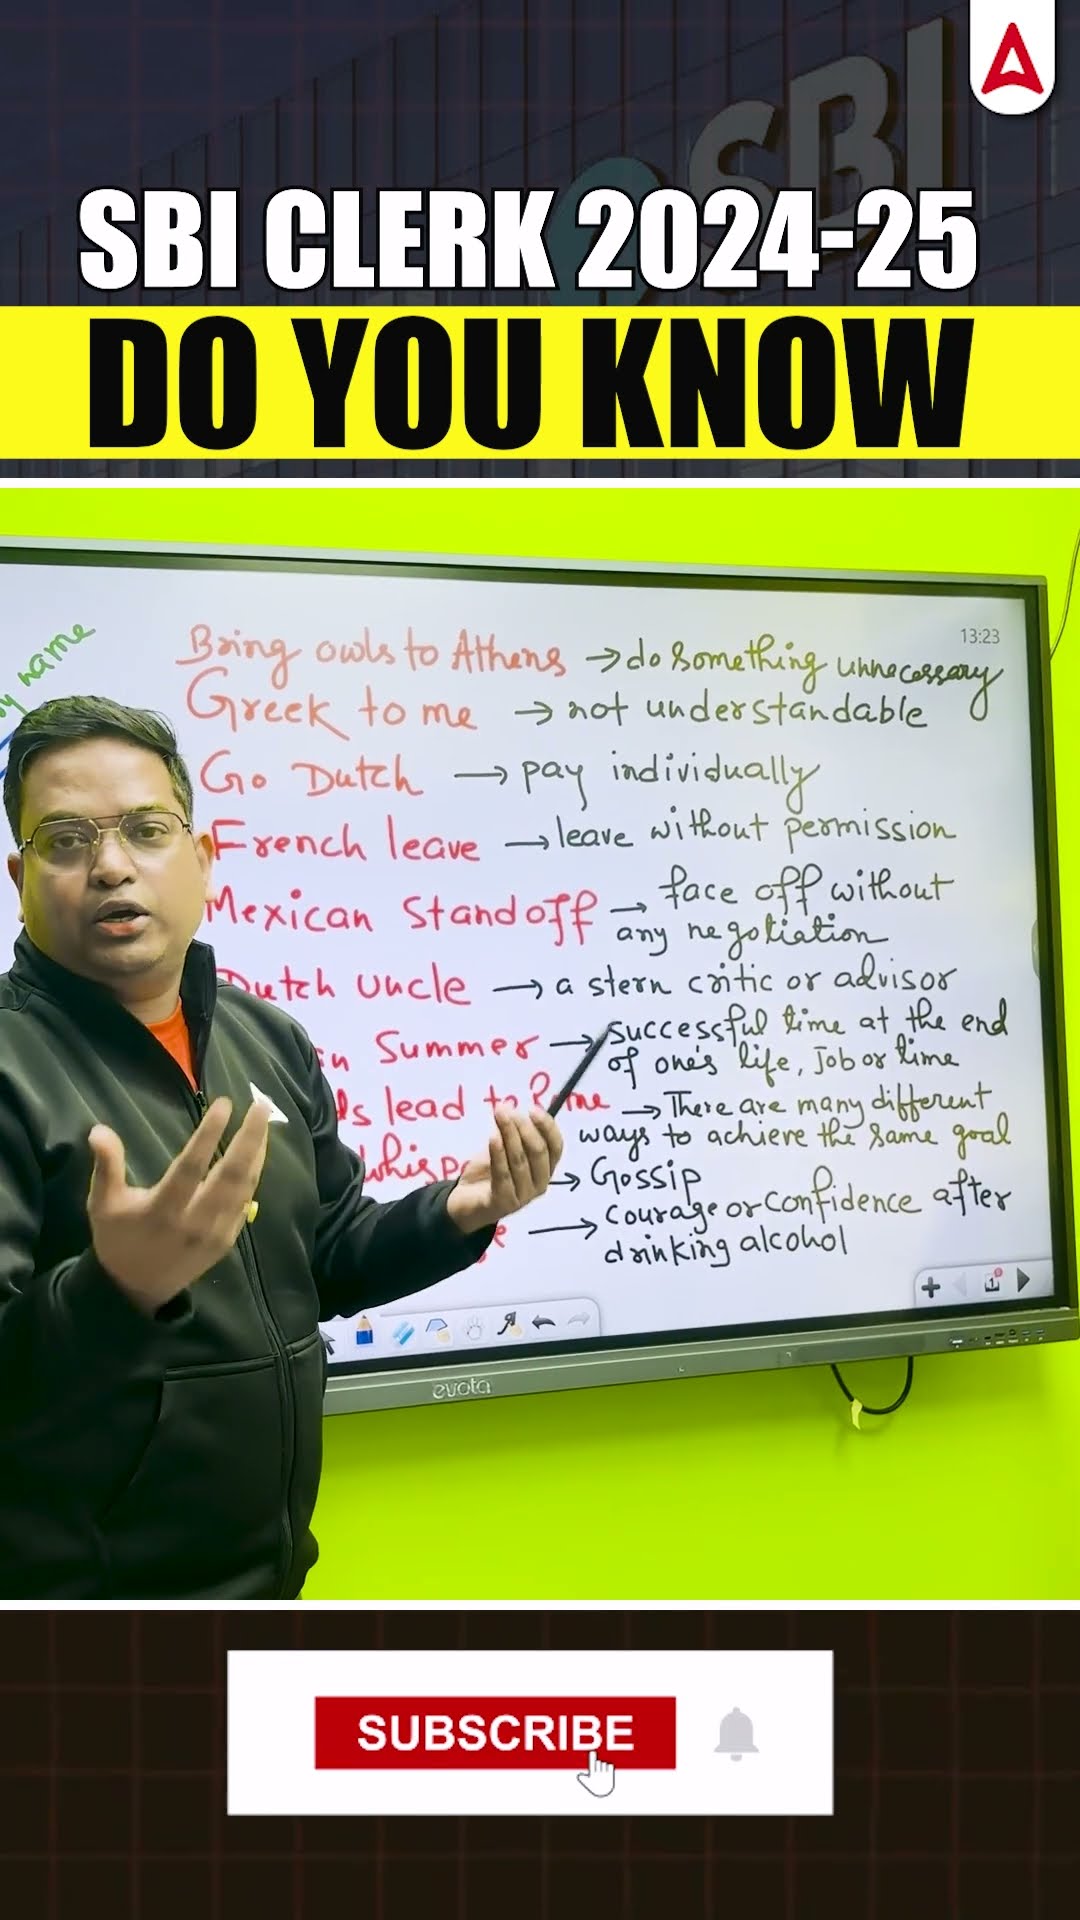 SBI
SBI CLERK 2024-25
DO YOU KNOW
13:23
name
Bring owls to Athens → do something unnecessary
Greek to me → not understandable
Go Dutch → pay individually
French leave → leave without permission
Mexican Standoff → face off without
any negotiation
Dutch uncle → a stern critic or advisor
Summer → successful time at the end
of one's life, job or time
lead to → There are many different
ways to achieve the same goal
→ Gossip
→ courage or confidence after
drinking alcohol
1
evota
SUBSCRIBE